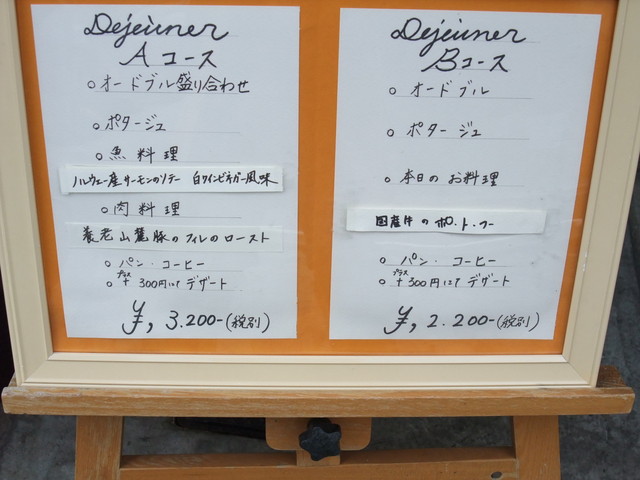 Dejeuner
Aコース
○オードブル盛り合わせ
○ポタージュ
○魚料理
ノルウェー産サーモンのソテー 白ワインビネガー風味
○肉料理
養老山麓豚のフィレのロースト
○パン・コーヒー
プラス
○+300円にてデザート
¥, 3.200-(税別)
Dejeuner
Bコース
○オードブル
○ポタージュ
○本日のお料理
国産牛のポ・ト・フー
○パン・コーヒー
プラス
○+300円にてデザート
¥, 2.200-(税別)